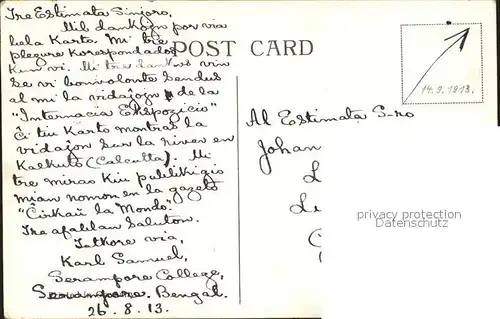 Tre Estimata Sinjoro,
Mil dankojn por via
bela Karto. Mi tre
plezure korespondados
kun vi. Mi tre dankus vin
se vi bonvolonte sendus
al mi la vidaĵojn de la
"Internacia Ekspozicio"
Ĉi tiu Karto montras la
vidaĵon sur la river en
Kalkuto (Calcutta). Mi
tre miras kiu publikigis
mian nomon en la gazeto
"Ĉirkaŭ la Mondo."
Tre afablan Saluton.
Tutkore via,
Karl Samuel,
Serampore College,
Serampore. Bengal.
26.8.13.
POST CARD
14.9.1913.
Al Estimata S-ro
Johan
L
Le
privacy protection
Datenschutz